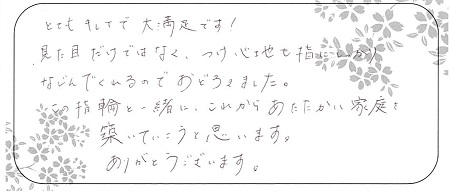 とてもキレイで大満足です!
見た目だけではなく、つけ心地も指にしっかり
なじんでくれるのでおどろきました。
この指輪と一緒に、これからあたたかい家庭を
築いていこうと思います。
ありがとうございます。